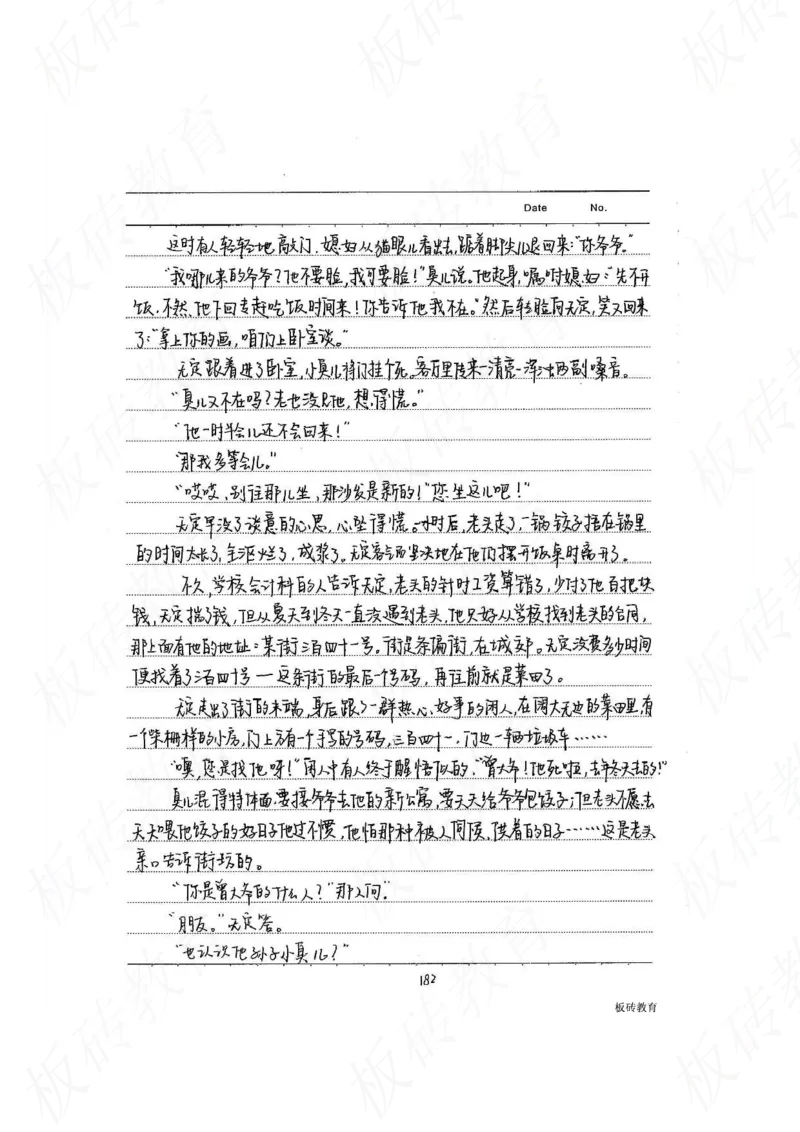 Date No.
这时有人轻轻地敲门,媳妇从猫眼儿看出去,踮着脚尖儿退回来:“你爷爷。”
“我哪儿来的爷爷?他不要脸,我可要脸!”臭儿说。他起身,嘱咐媳妇:“先不开
饭,不然,他下回专赶吃饭时间来!你告诉他我不在。”然后转脸向无定,笑又回来
了:“拿上你的画,咱们上卧室谈。”
无定跟着进了卧室,小臭儿将门挂个死。客厅里传来一清亮一浑浊两副嗓音。
“臭儿又不在吗?老也没见他,想得慌。”
“他一时半会儿还不会回来!”
“那我多等会儿。”
“哎哎,别往那儿坐,那沙发是新的!”“您坐这儿吧!”
无定早没了谈意的心思,心坠得慌。小时后,老头走了,一锅饺子捂在锅里
的时间太长了,全沤烂了,成浆了。无定客气而坚决地在他们摆开饭桌时离开了。
不久,学校会计科的人告诉无定,老头的计时工资算错了,少付了他百把块
钱,无定揣了钱,但从夏天到冬天一直没遇到老头,他只好从学校找到老头的合同,
那上面有他的地址:某街三百四十一号。街是条偏街,在城郊。无定没费多少时间
便找着了三百四十号——这条街的最后一个号码,再往前就是菜田了。
无定走出了街的末端,身后跟了一群热心、好事的闲人,在阔大无边的菜田里,有
一个柴棚样的小房,门上方有一个手写的号码,三百四十一,门边一辆垃圾车……
“噢,您是找他呀!”闲人中有人终于醒悟似的,“曾大爷!他死啦,去年冬天去的!”
臭儿混得特体面,要接爷爷去他的新公寓,要天天给爷爷包饺子;但老头不愿去
天天喂他饺子的好日子他过不惯,他怕那种被人伺候、供着的日子……这是老头
亲口告诉街坊的。
“你是曾大爷的什么人?”那人问。
“朋友。”无定答。
“也认识他孙子小臭儿?”
182
板砖教育